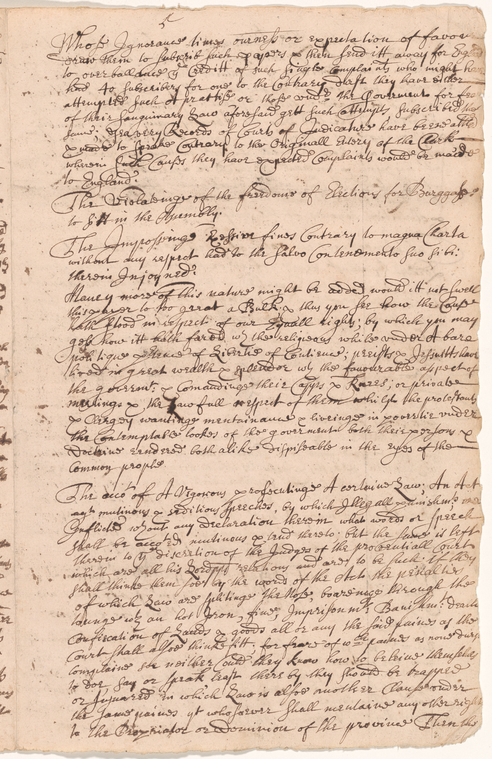 5
Whose Ignorance times ourness or expectation of favor
draw them to subscrib such papers & then send itt away for
to overballance ye Creditt of such single Complaints who might
40 Subscribers for one to the Contrary durst they have either
attempted such a practise or those under the Government for fear
of their Sanguinary Law aforesaid gett such Attempt, Subscribed
same: Records of Courts of Judicature have beene
& made to speake Contrary to the Originall Entery of the Clerk
wherein such Causes they have expected Complaints would be made
to England.
The Violateinge of the freedome of Elections for Burggasses
to sitt in the Assembly.
The Imposeinge Excessive fines Contrary to magna Charta
without any respect had to the Salvo Contenemento Suo sibi:
therein Injoyned.
Maney more of this nature might be added would itt not swell
this paper to too great a Bulk & thus you see how the Case
hath stood in respect of our Civill rights; by which you may
gess how itt hath fared wth the religeous while under a bare
pretence of Liberty of Contience; preists & Jessuitts have
lived in great wealth & splendor wth the favourable aspect of
the goverment; & Comandinge their Capps & Knees; or private
meetings & the lawfull respect of them whilst the protestants
& Clergey wantinge mentainance & liveinge in povertie under
the Contemptable lookes of the goverment both their persons &
doctrine rendered both alike dispiseable in the eyes of the
Common people
The acco: of A Vigorous prosecutinge A certaine Law; An Act
agt mutinous & seditious speeches, by which Illegall punishments are
Inflicted wthout any declaration therein what words or speech
shall be accoted mutinous & tend thereto; but the same is left
therein to ye discretion of the Judges of the provintiall Court
which are all his Lordpps relations and are to be such as they
shall think them soe; by the words of the Acts the penalties
of which Law are slittinge the Nose, boareinge through the
tounge wth an hot Iron, fine, Imprisonmt, Banishmt: death
Confiscation of Lands & goods all or any the said paines as the
Court shall alsoe thinke fitt; for feare of wch paines as none durst
complaine soe neither could they know how to beleive themselves
to doe say or speak least thereby they should be trapped
or Insnared in which Law is allsoe another Clause under
the same paines yt whosoever shall mentaine any other right
to the Proprietor or dominion of the province Then the